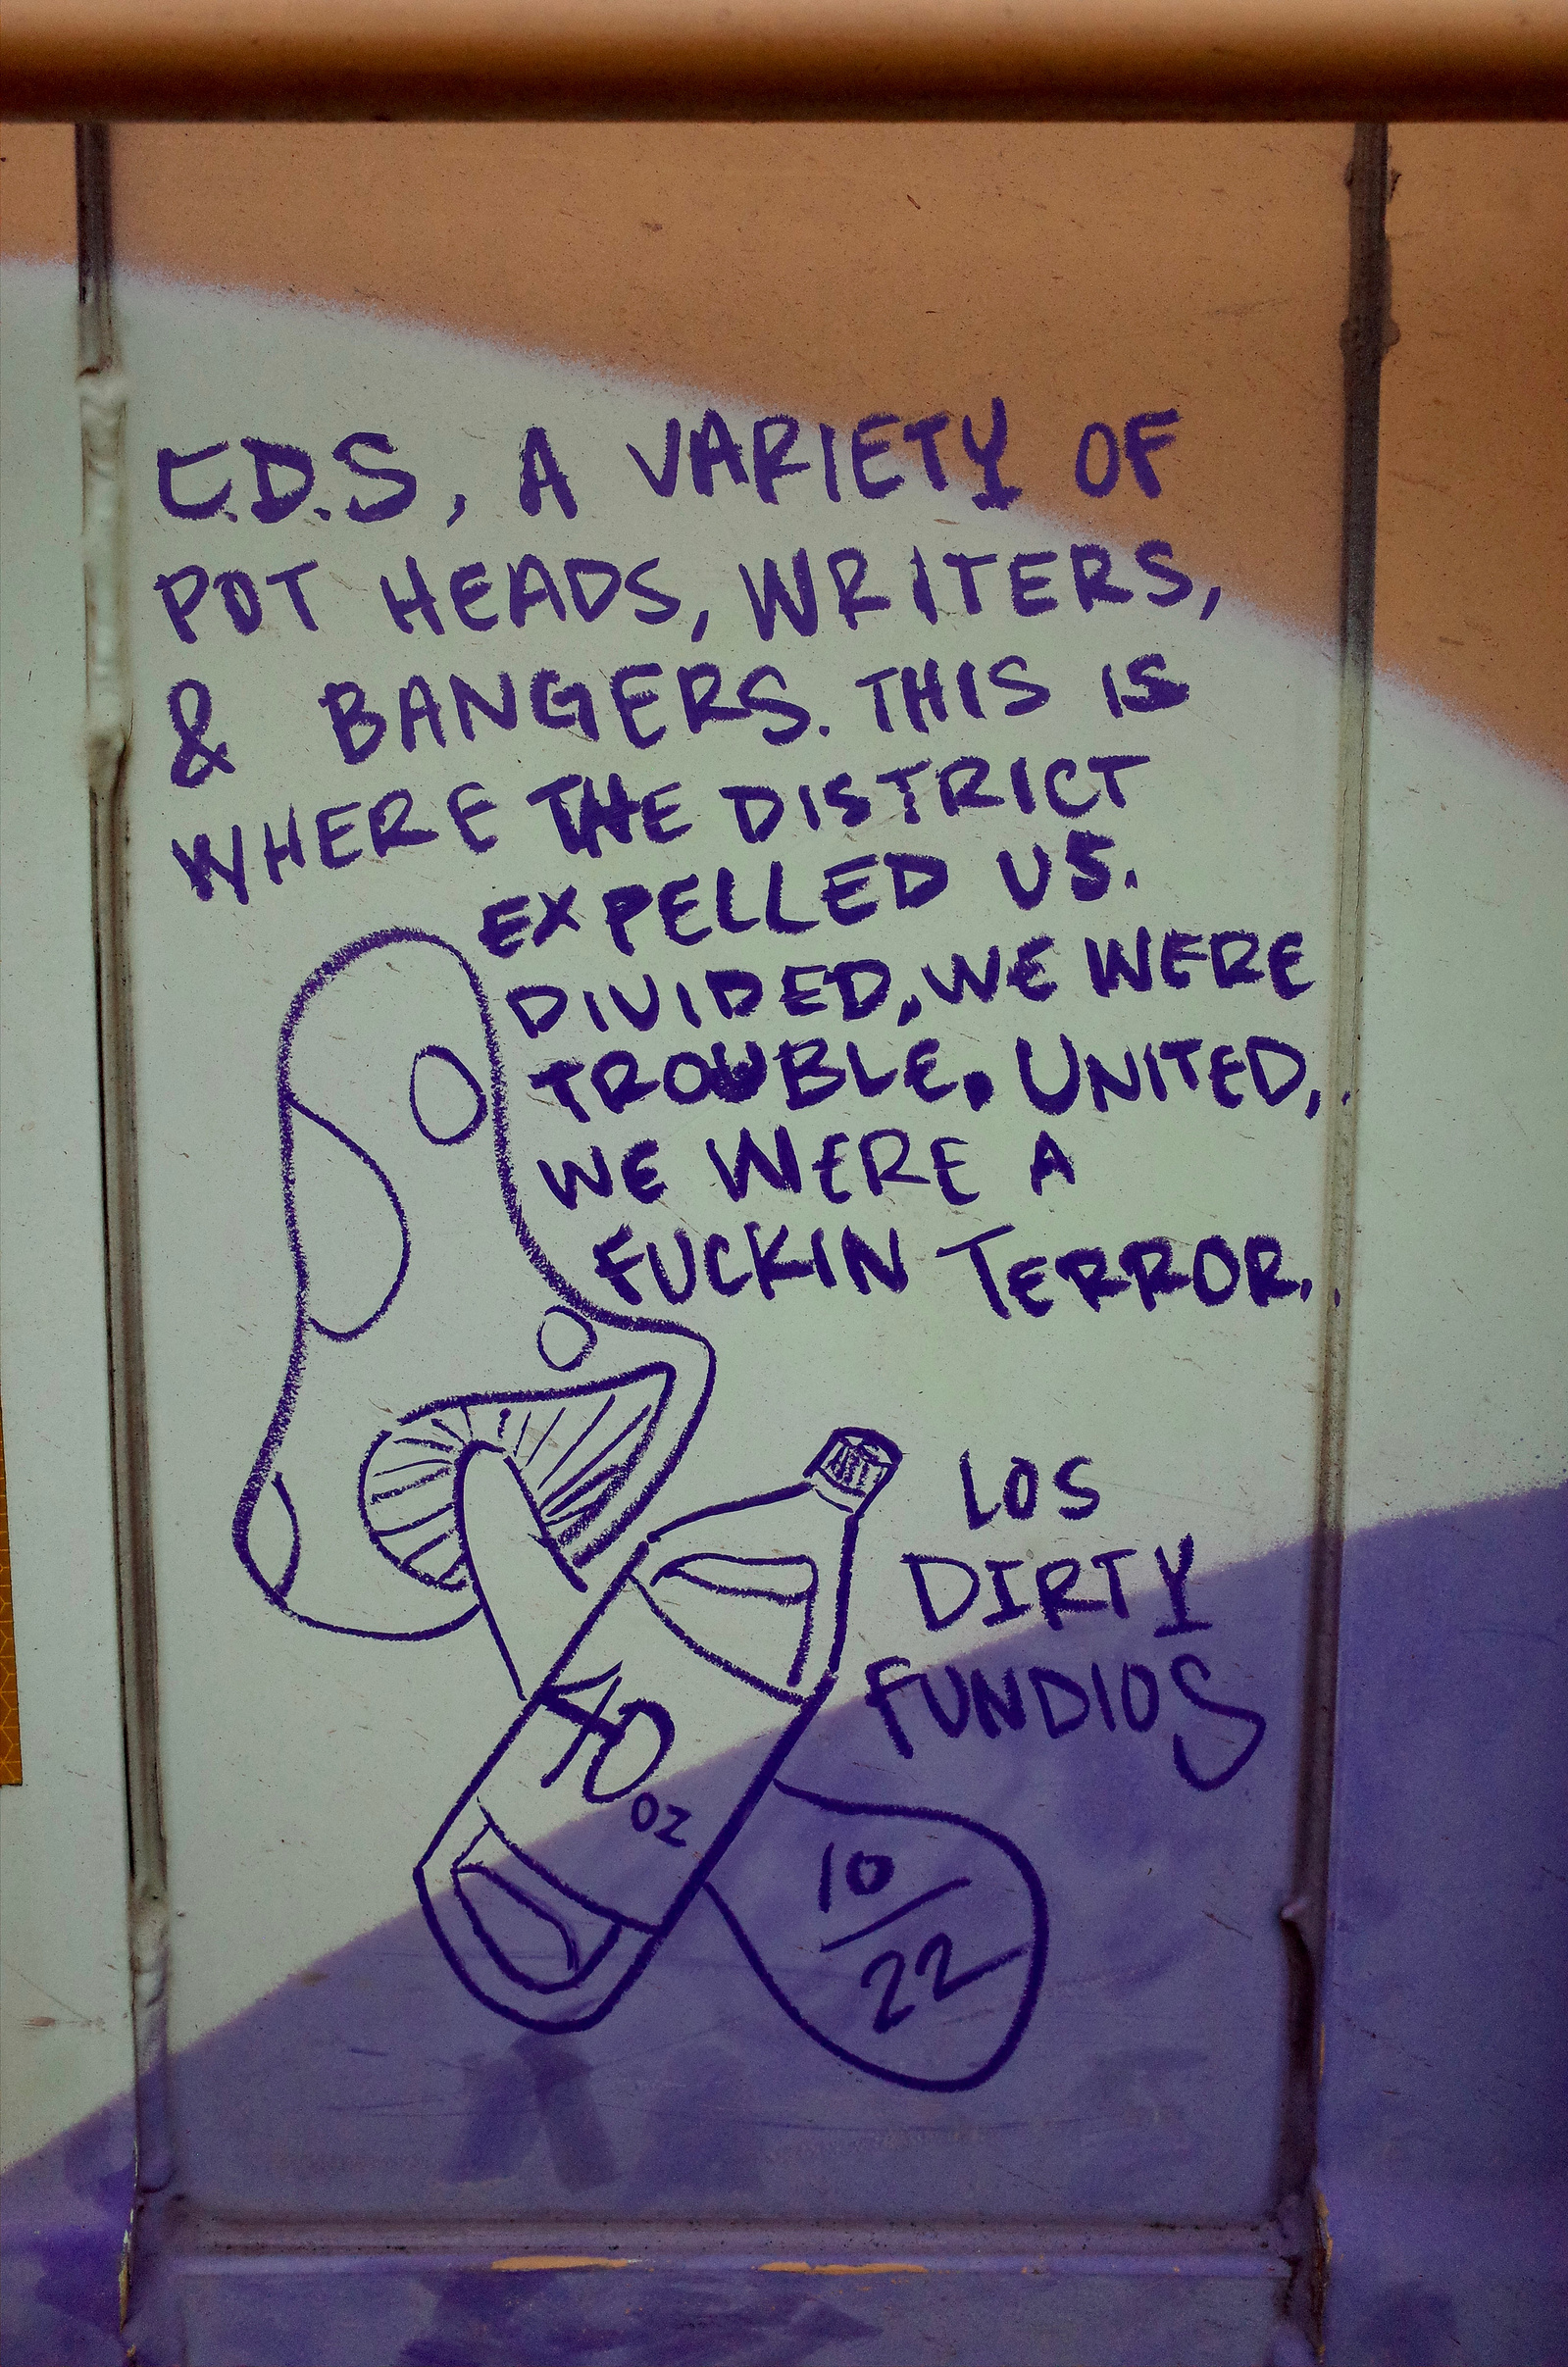 C.D.S, A VARIETY OF
POT HEADS, WRITERS,
& BANGERS. THIS IS
WHERE THE DISTRICT
EXPELLED US.
DIVIDED, WE WERE
TROUBLE. UNITED,
WE WERE A
FUCKIN TERROR.
LOS
DIRTY
FUNDIOS
40
OZ
10/22